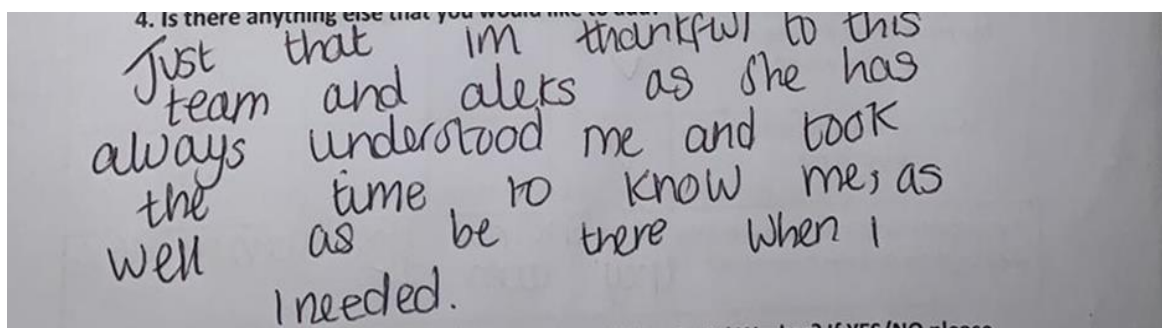 4. Is there anything else that you would like to add?
Just that im thankful to this
team and aleks as she has
always understood me and took
the time to know me, as
well as be there when I
I needed.
? If YES/NO please